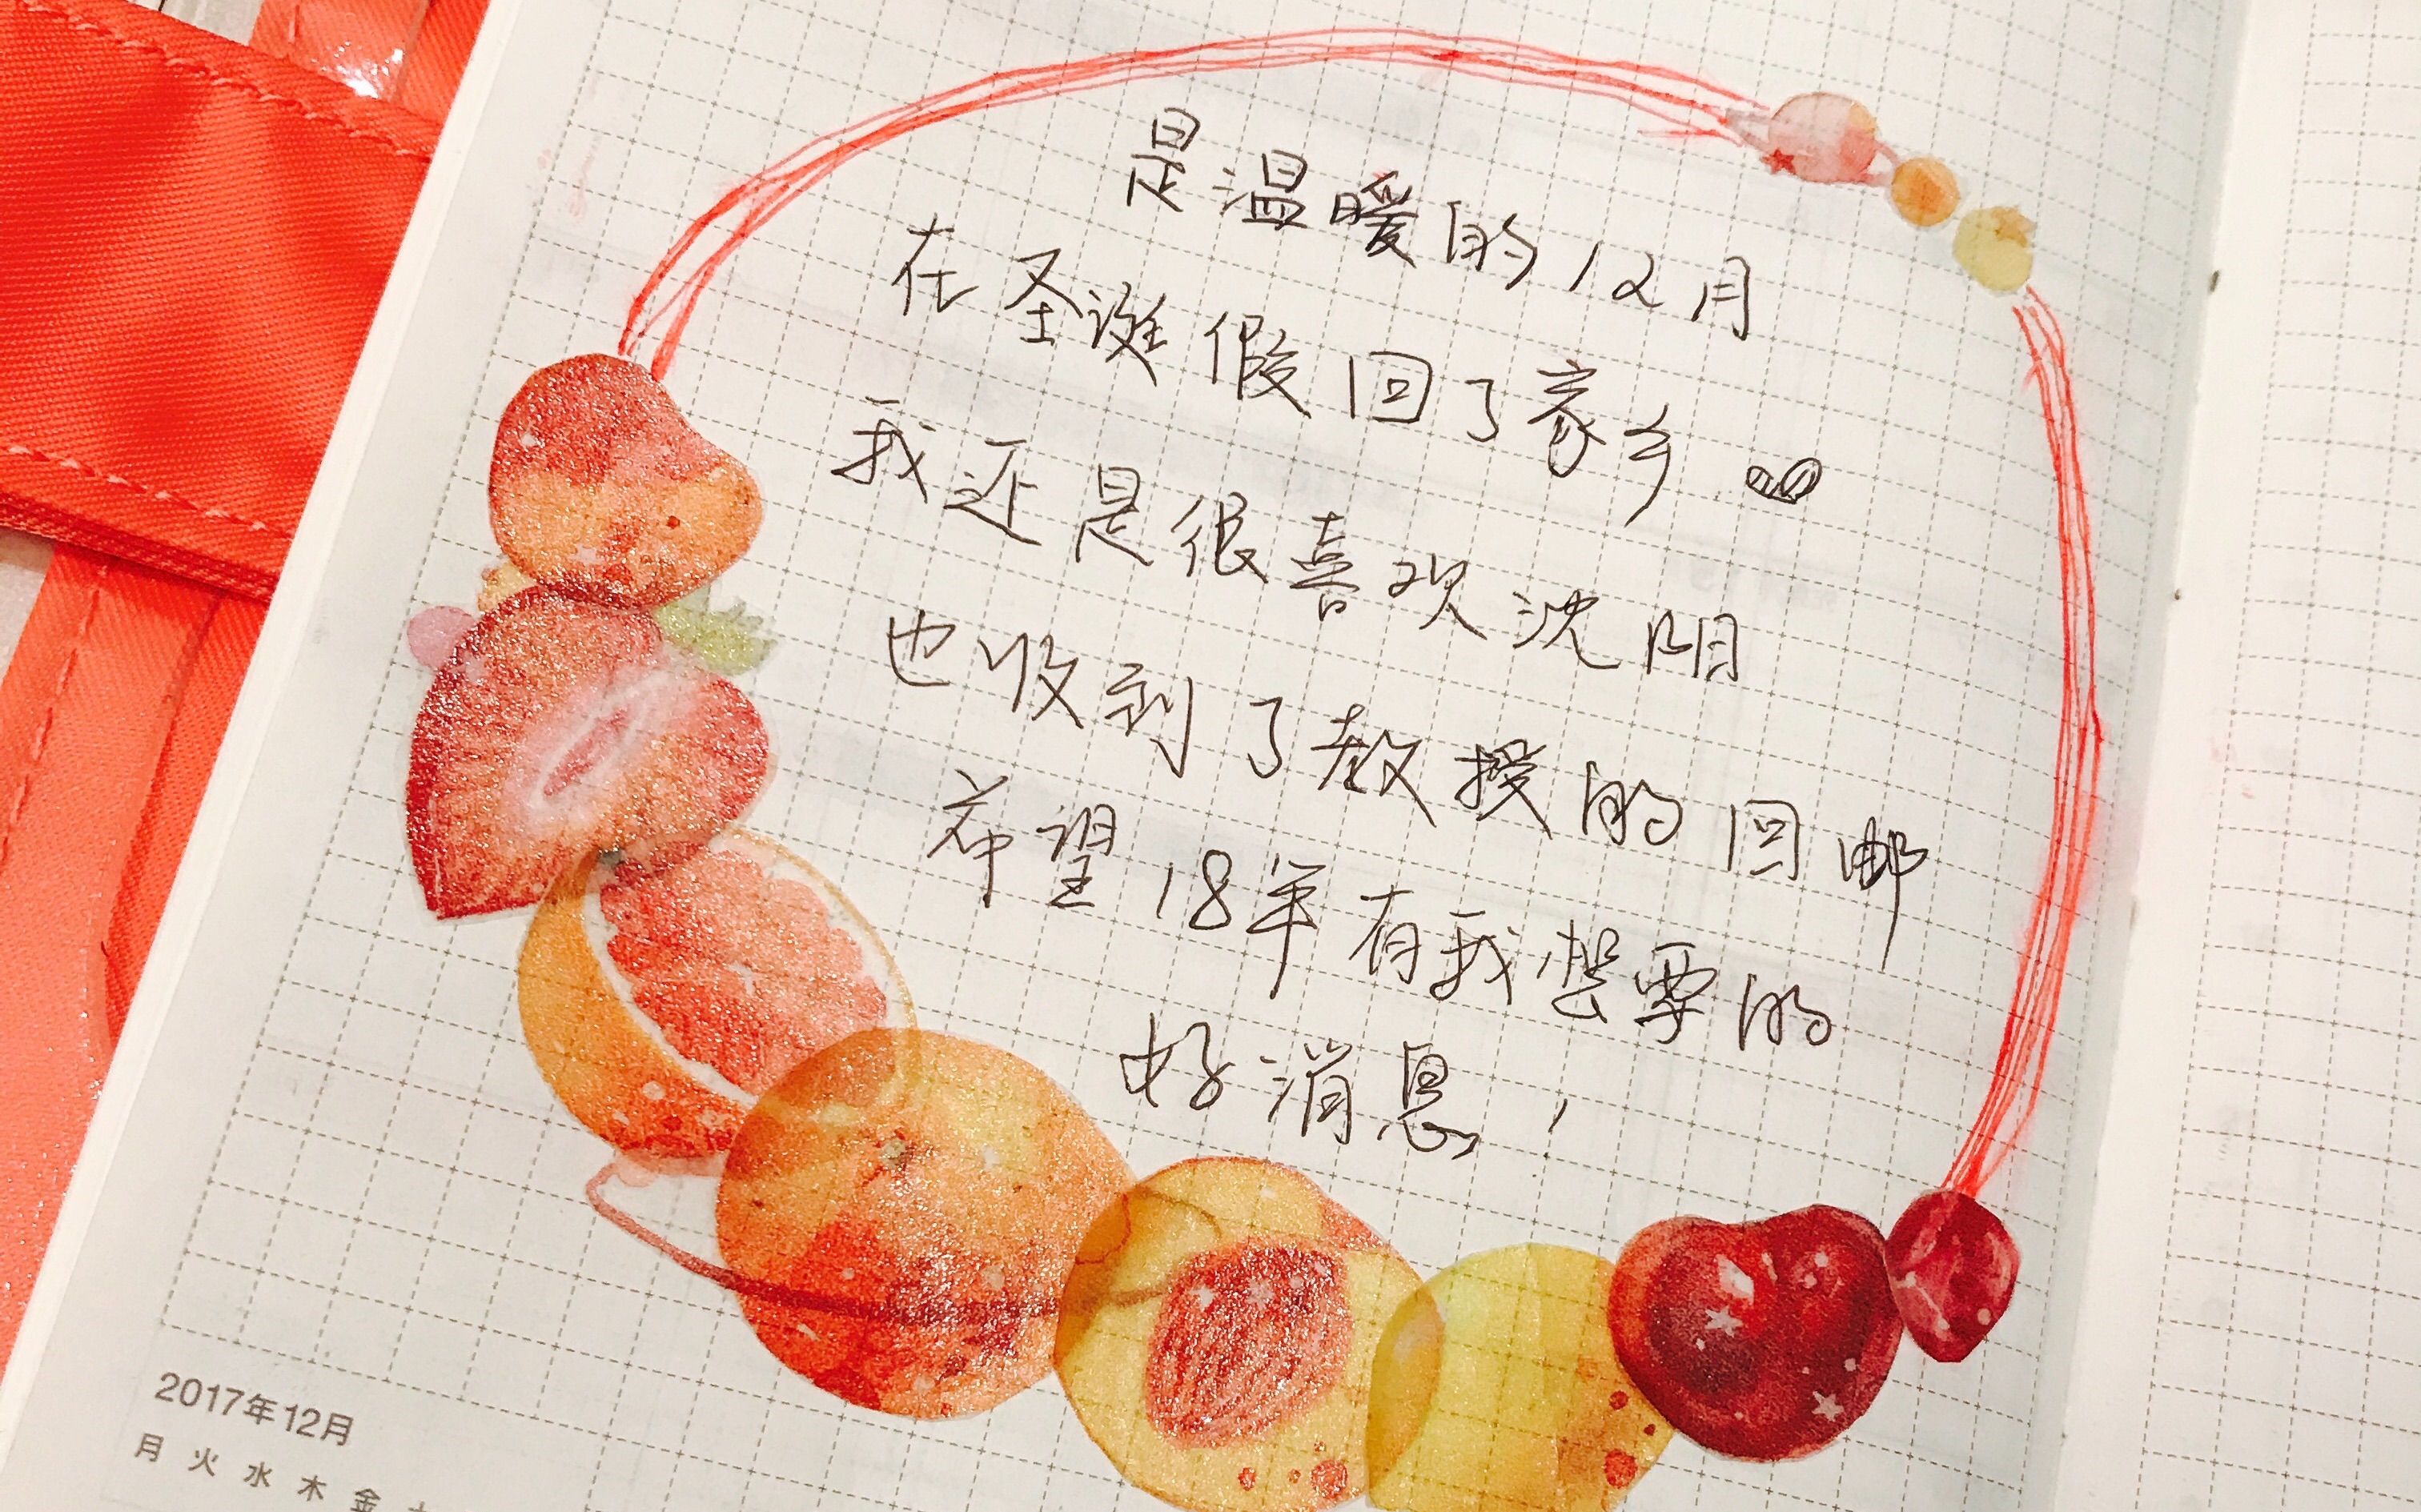 是温暖的12月
在圣诞假回了家乡
我还是很喜欢沈阳
也收到了教授的回邮
希望18年有我想要的
好消息，
2017年12月
月 火 水 木 金